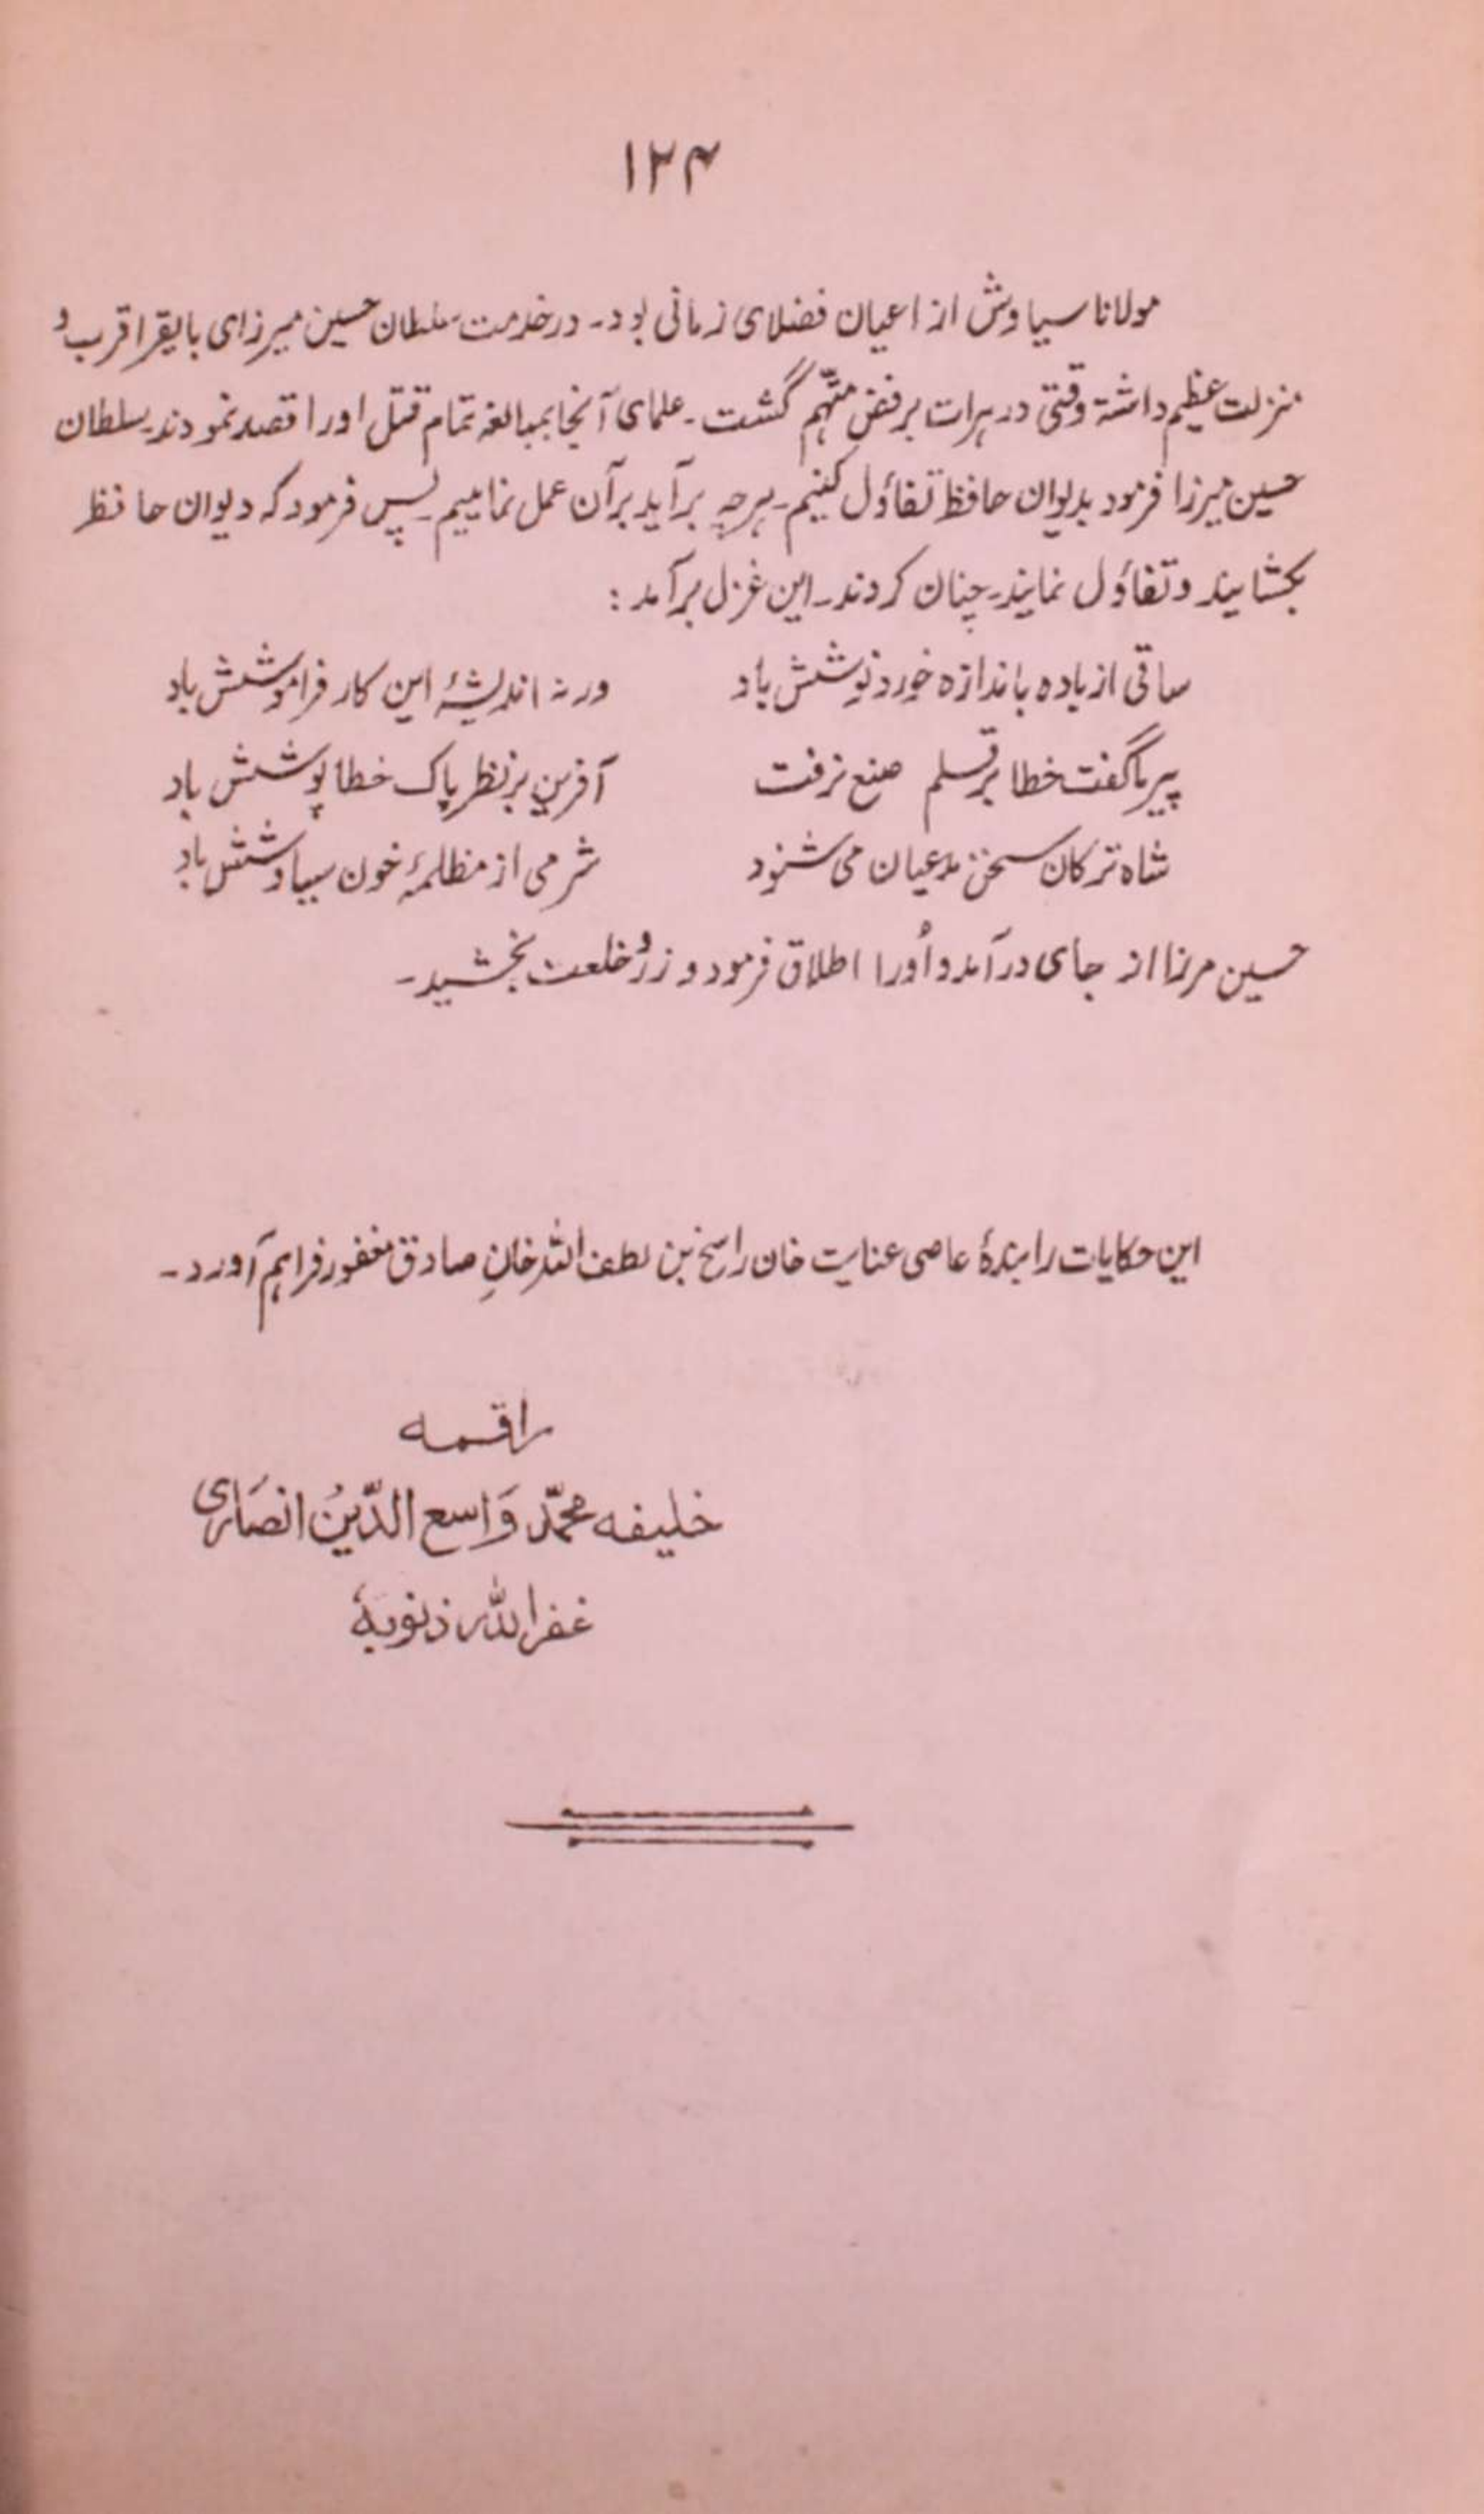 ۱۲۴
مولانا سیاوش از اعیان فضلای زمانی بود۔ در خدمت سلطان حسین میرزای بایقرا قرب و
منزلت عظیم داشتہ وقتی در ہرات برفض متّہم گشت۔ علمای آنجا بمبالغہ تمام قتل اورا قصد نمودند۔ سلطان
حسین میرزا فرمود بدیوان حافظ تفاؤل کنیم۔ ہرچہ برآید برآن عمل نماییم۔ پس فرمود کہ دیوان حافظ
بکشایند و تفاؤل نمایند۔ چنان کردند۔ این غزل برآمد:
ساقی ار بادہ باندازہ خورد نوشش باد ورنہ اندیشۂ این کار فراموشش باد
پیر ما گفت خطا بر قلم صنع نرفت آفرین بر نظر پاک خطا پوشش باد
شاہ ترکان سخن مدعیان می شنود شرمی از مظلمۂ خون سیاوشش باد
حسین مرزا از جای درآمد و اُورا اطلاق فرمود و زر و خلعت بخشید۔
این حکایات را بندۂ عاصی عنایت خان راسخ بن لطف اللہ خانِ صادق مغفور فراہم آورد۔
راقمه
خلیفه محمّد وَاسع الدّینُ انصَاری
غفر اللّٰه ذنوبهٗ